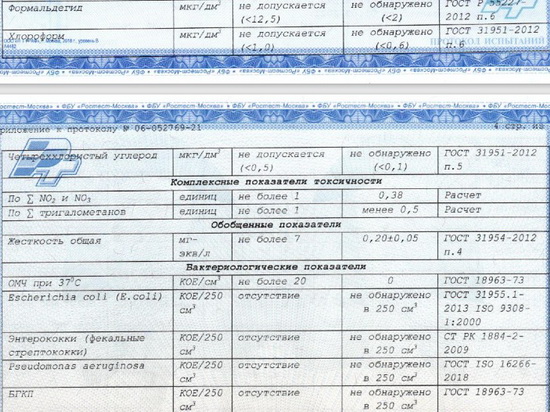 Формальдегид мкг/дм³ не допускается не обнаружено ГОСТ Р 55227-
(<12,5) (<2) 2012 п.6
Хлороформ мкг/дм³ не допускается не обнаружено ГОСТ 31951-2012
(<1,0) (<0,6) п.6
ПРОТОКОЛ ИСПЫТАНИЙ
ФБУ «Ростест-Москва» • ФБУ «Ростест-Москва» • ФБУ «Ростест-Москва»
риложение к протоколу № 06-052769-21 4 стр. из
Четыреххлористый углерод мкг/дм³ не допускается не обнаружено ГОСТ 31951-2012
(<0,5) (<0,1) п.5
Комплексные показатели токсичности
По ∑ NO₂ и NO₃ единиц не более 1 0,38 Расчет
По ∑ тригалометанов единиц не более 1 менее 0,5 Расчет
Обобщенные показатели
Жесткость общая мг- не более 7 0,20±0,05 ГОСТ 31954-2012
экв/л п.4
Бактериологические показатели
ОМЧ при 37⁰С КОЕ/см³ не более 20 0 ГОСТ 18963-73
Escherichia coli (E.coli) КОЕ/250 отсутствие не обнаружено ГОСТ 31955.1-
см³ в 250 см³ 2013 ISO 9308-
1:2000
Энтерококки (фекальные КОЕ/250 отсутствие не обнаружено СТ РК 1884-2-
стрептококки) см³ в 250 см³ 2009
Pseudomonas aeruginosa КОЕ/250 отсутствие не обнаружено ГОСТ ISO 16266-
см³ в 250 см³ 2018
БГКП КОЕ/250 отсутствие не обнаружено ГОСТ 18963-73
см³ в 250 см³